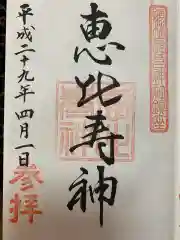 恵比寿神
平成二十九年四月一日
参拝